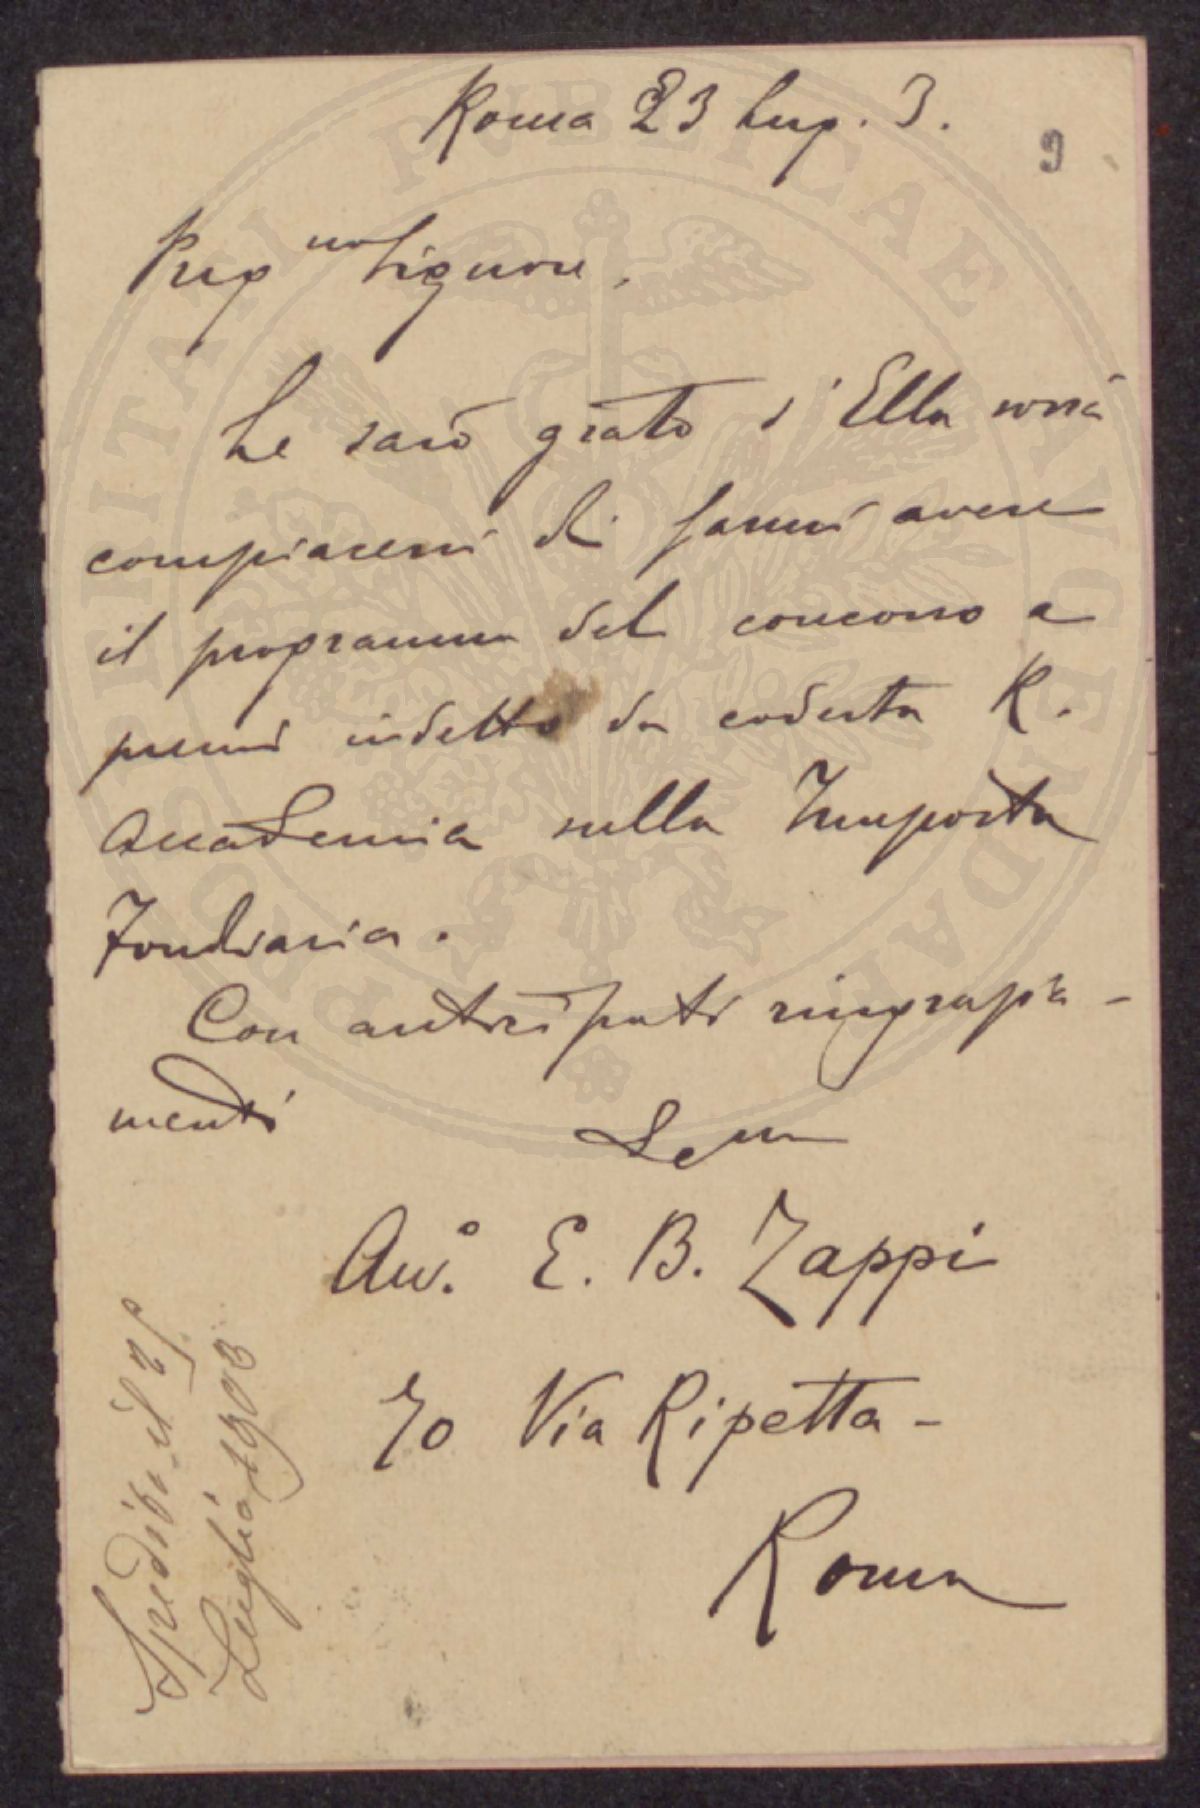 Roma 23 Lug. 3.
9
Preg mo Signore,
Le sarò grato s'Ella vorrà
compiacersi di farmi avere
il programma del concorso a
premi indetto da codesta R.
Accademia sulla Imposta
Fondiaria.
Con anticipati ringrazia-
menti
Avv.o E. B. Zappi
70 Via Ripetta -
Roma
Spedito il 25
Luglio 1903
PROSPERITATI PUBLICAE AVGENDAE